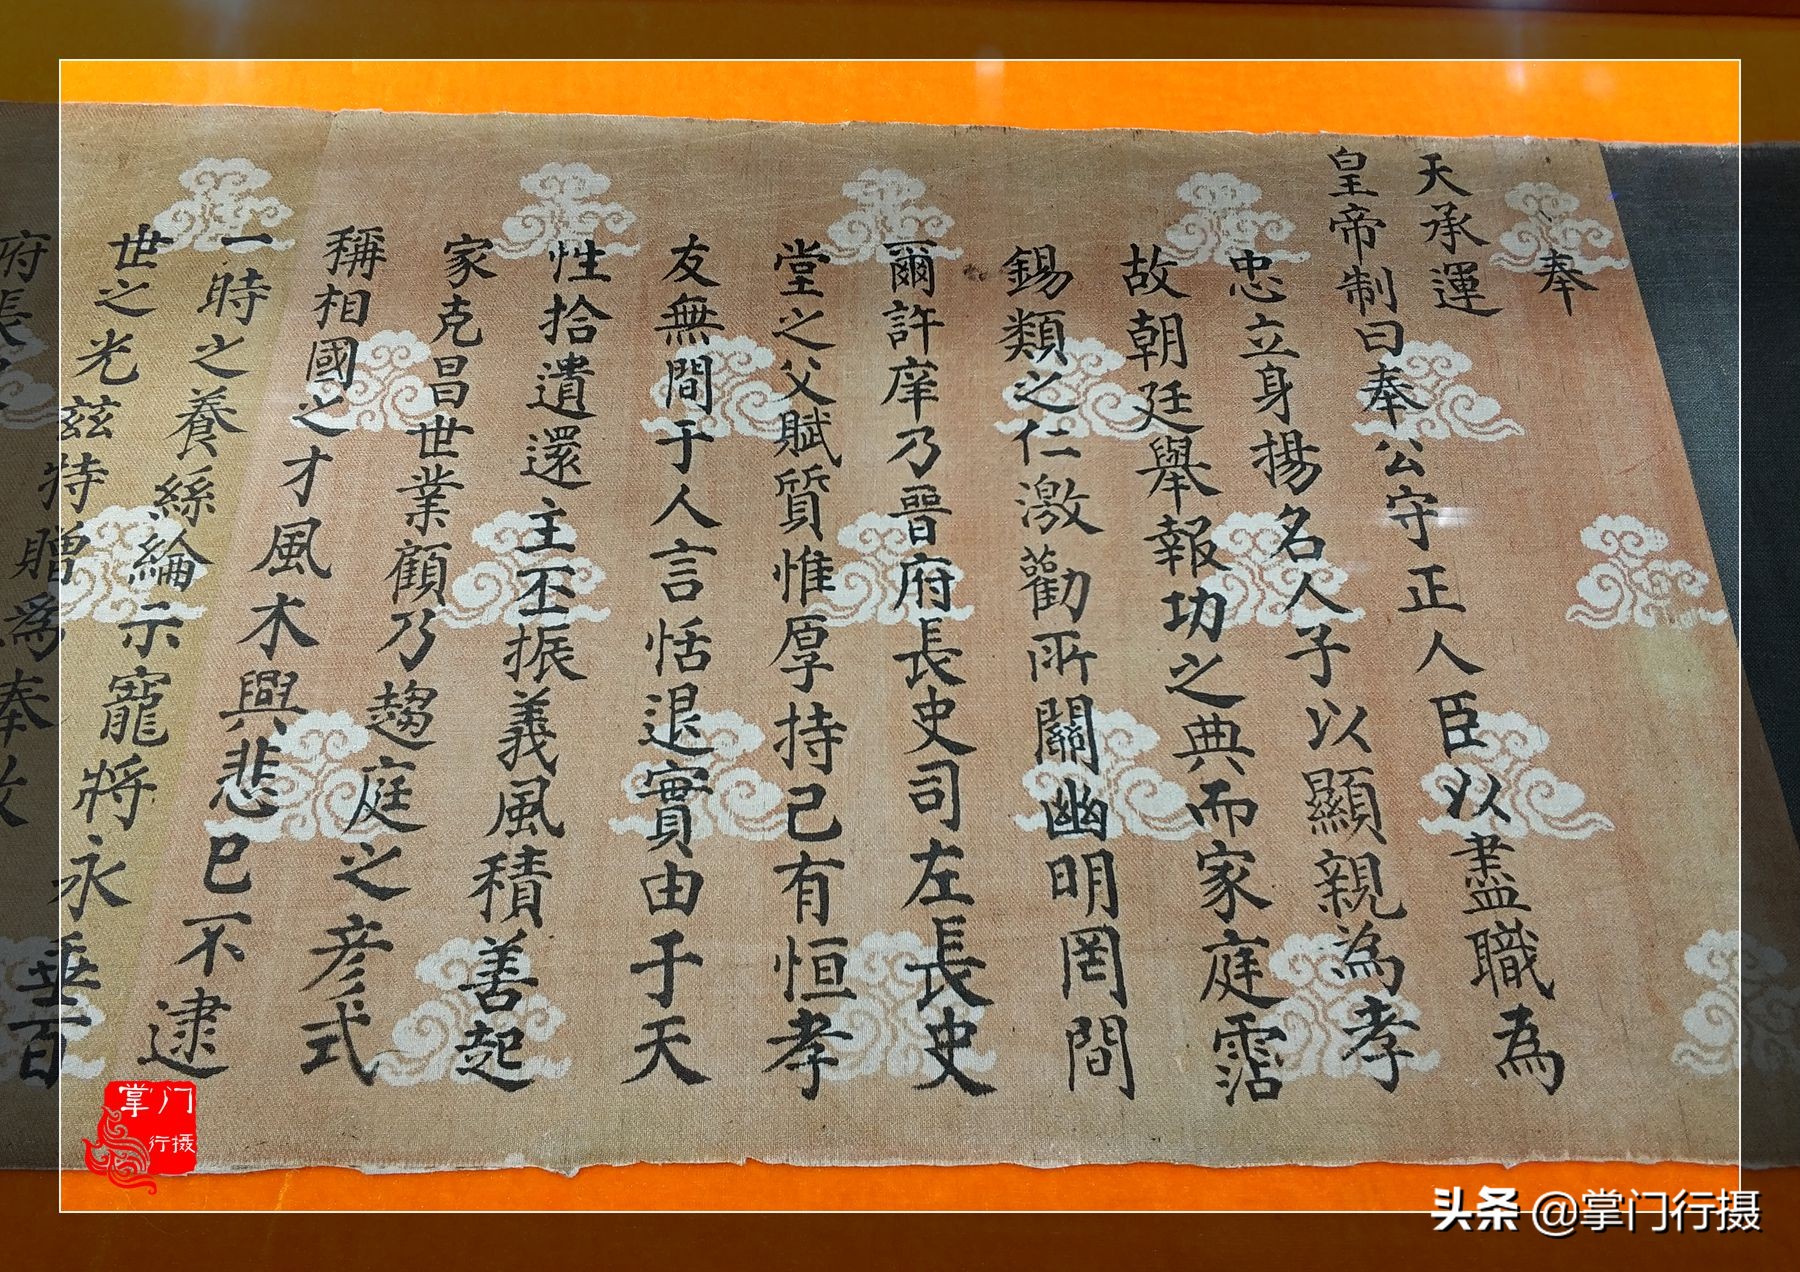 奉
天承運
皇帝制曰奉公守正人臣以盡職為
忠立身揚名人子以顯親為孝
故朝廷舉報功之典而家庭霑
錫類之仁激勸所關幽明罔間
爾許庠乃晉府長史司左長史
堂之父賦質惟厚持己有恒孝
友無間于人言恬退實由于天
性拾遺還主丕振義風積善起
家克昌世業顧乃趨庭之彥式
稱相國之才風木興悲已不逮
一時之養絲綸示寵將永垂百
世之光茲特贈為奉政
府長
掌门
行摄
头条 @掌门行摄